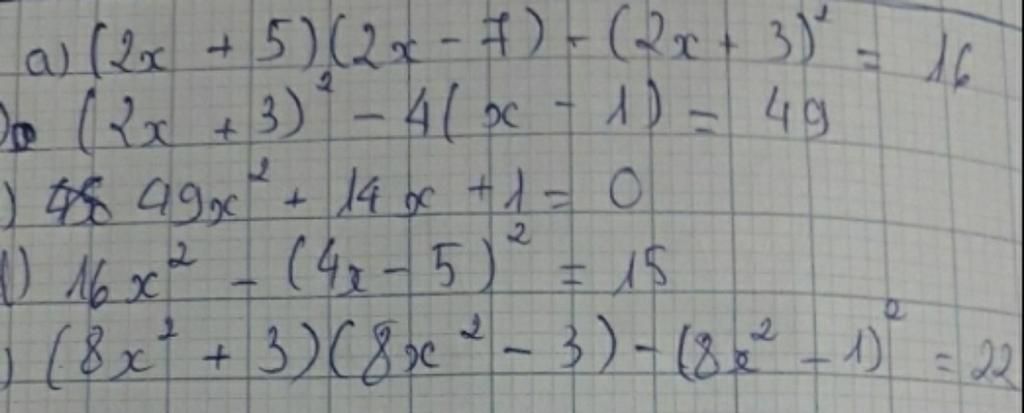 a) (2x + 5)(2x - 7) - (2x + 3)² = 16
(2x + 3)² - 4(x - 1) = 49
) 49x² + 14x + 1 = 0
d) 16x² - (4x - 5)² = 15
) (8x² + 3)(8x² - 3) - (8x² - 1)² = 22